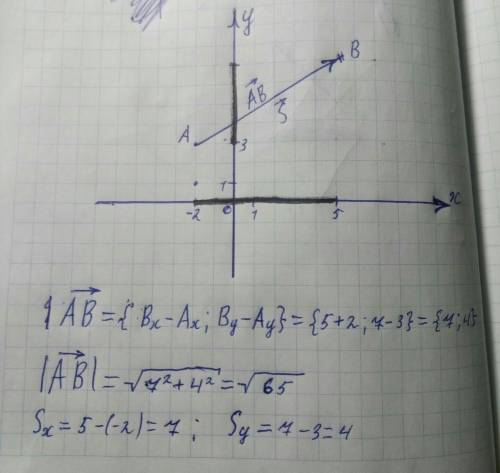 y
B
A
AB
S
3
1
-2 0 1 5 x
AB = { Bx - Ax ; By - Ay } = { 5 + 2 ; 7 - 3 } = { 7 ; 4 }
|AB| = √7² + 4² = √65
Sx = 5 - (-2) = 7 ; Sy = 7 - 3 = 4